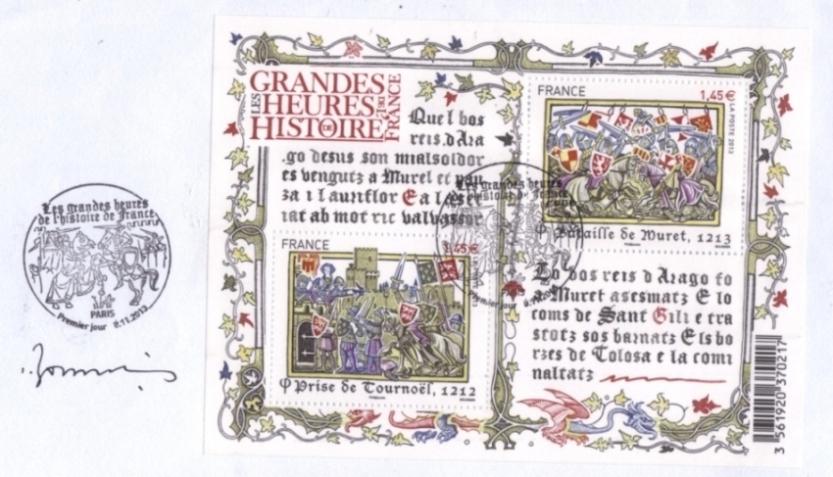 GRANDES
LES HEURES
HISTOIRE DE
FRANCE
Quel bos
reis d Ara
.go desus son mialsoldor
es vengutz a Murel et
za i l auriflor E a
iat ab mot ric valvassor
FRANCE
1,45€
LA POSTE 2013
Bataille de Muret, 1213
FRANCE
1,45€
Prise de Tournoël, 1212
Lo bos reis d Arago fo
a Muret asesmatz E lo
coms de Sant Gili e tra
stotz sos barnatz Els bo
rzes de Tolosa e la comi
naltatz
3 561920 370217
Les grandes heures
de l'histoire de France
PARIS
Premier jour 8.11.2013
Les grandes heures
de l'histoire de France
Premier jour